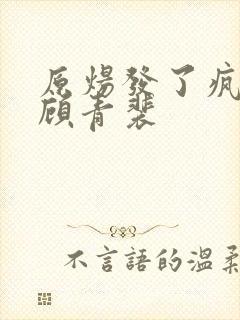 原煬發了瘋
顧青裴
不言語的溫柔